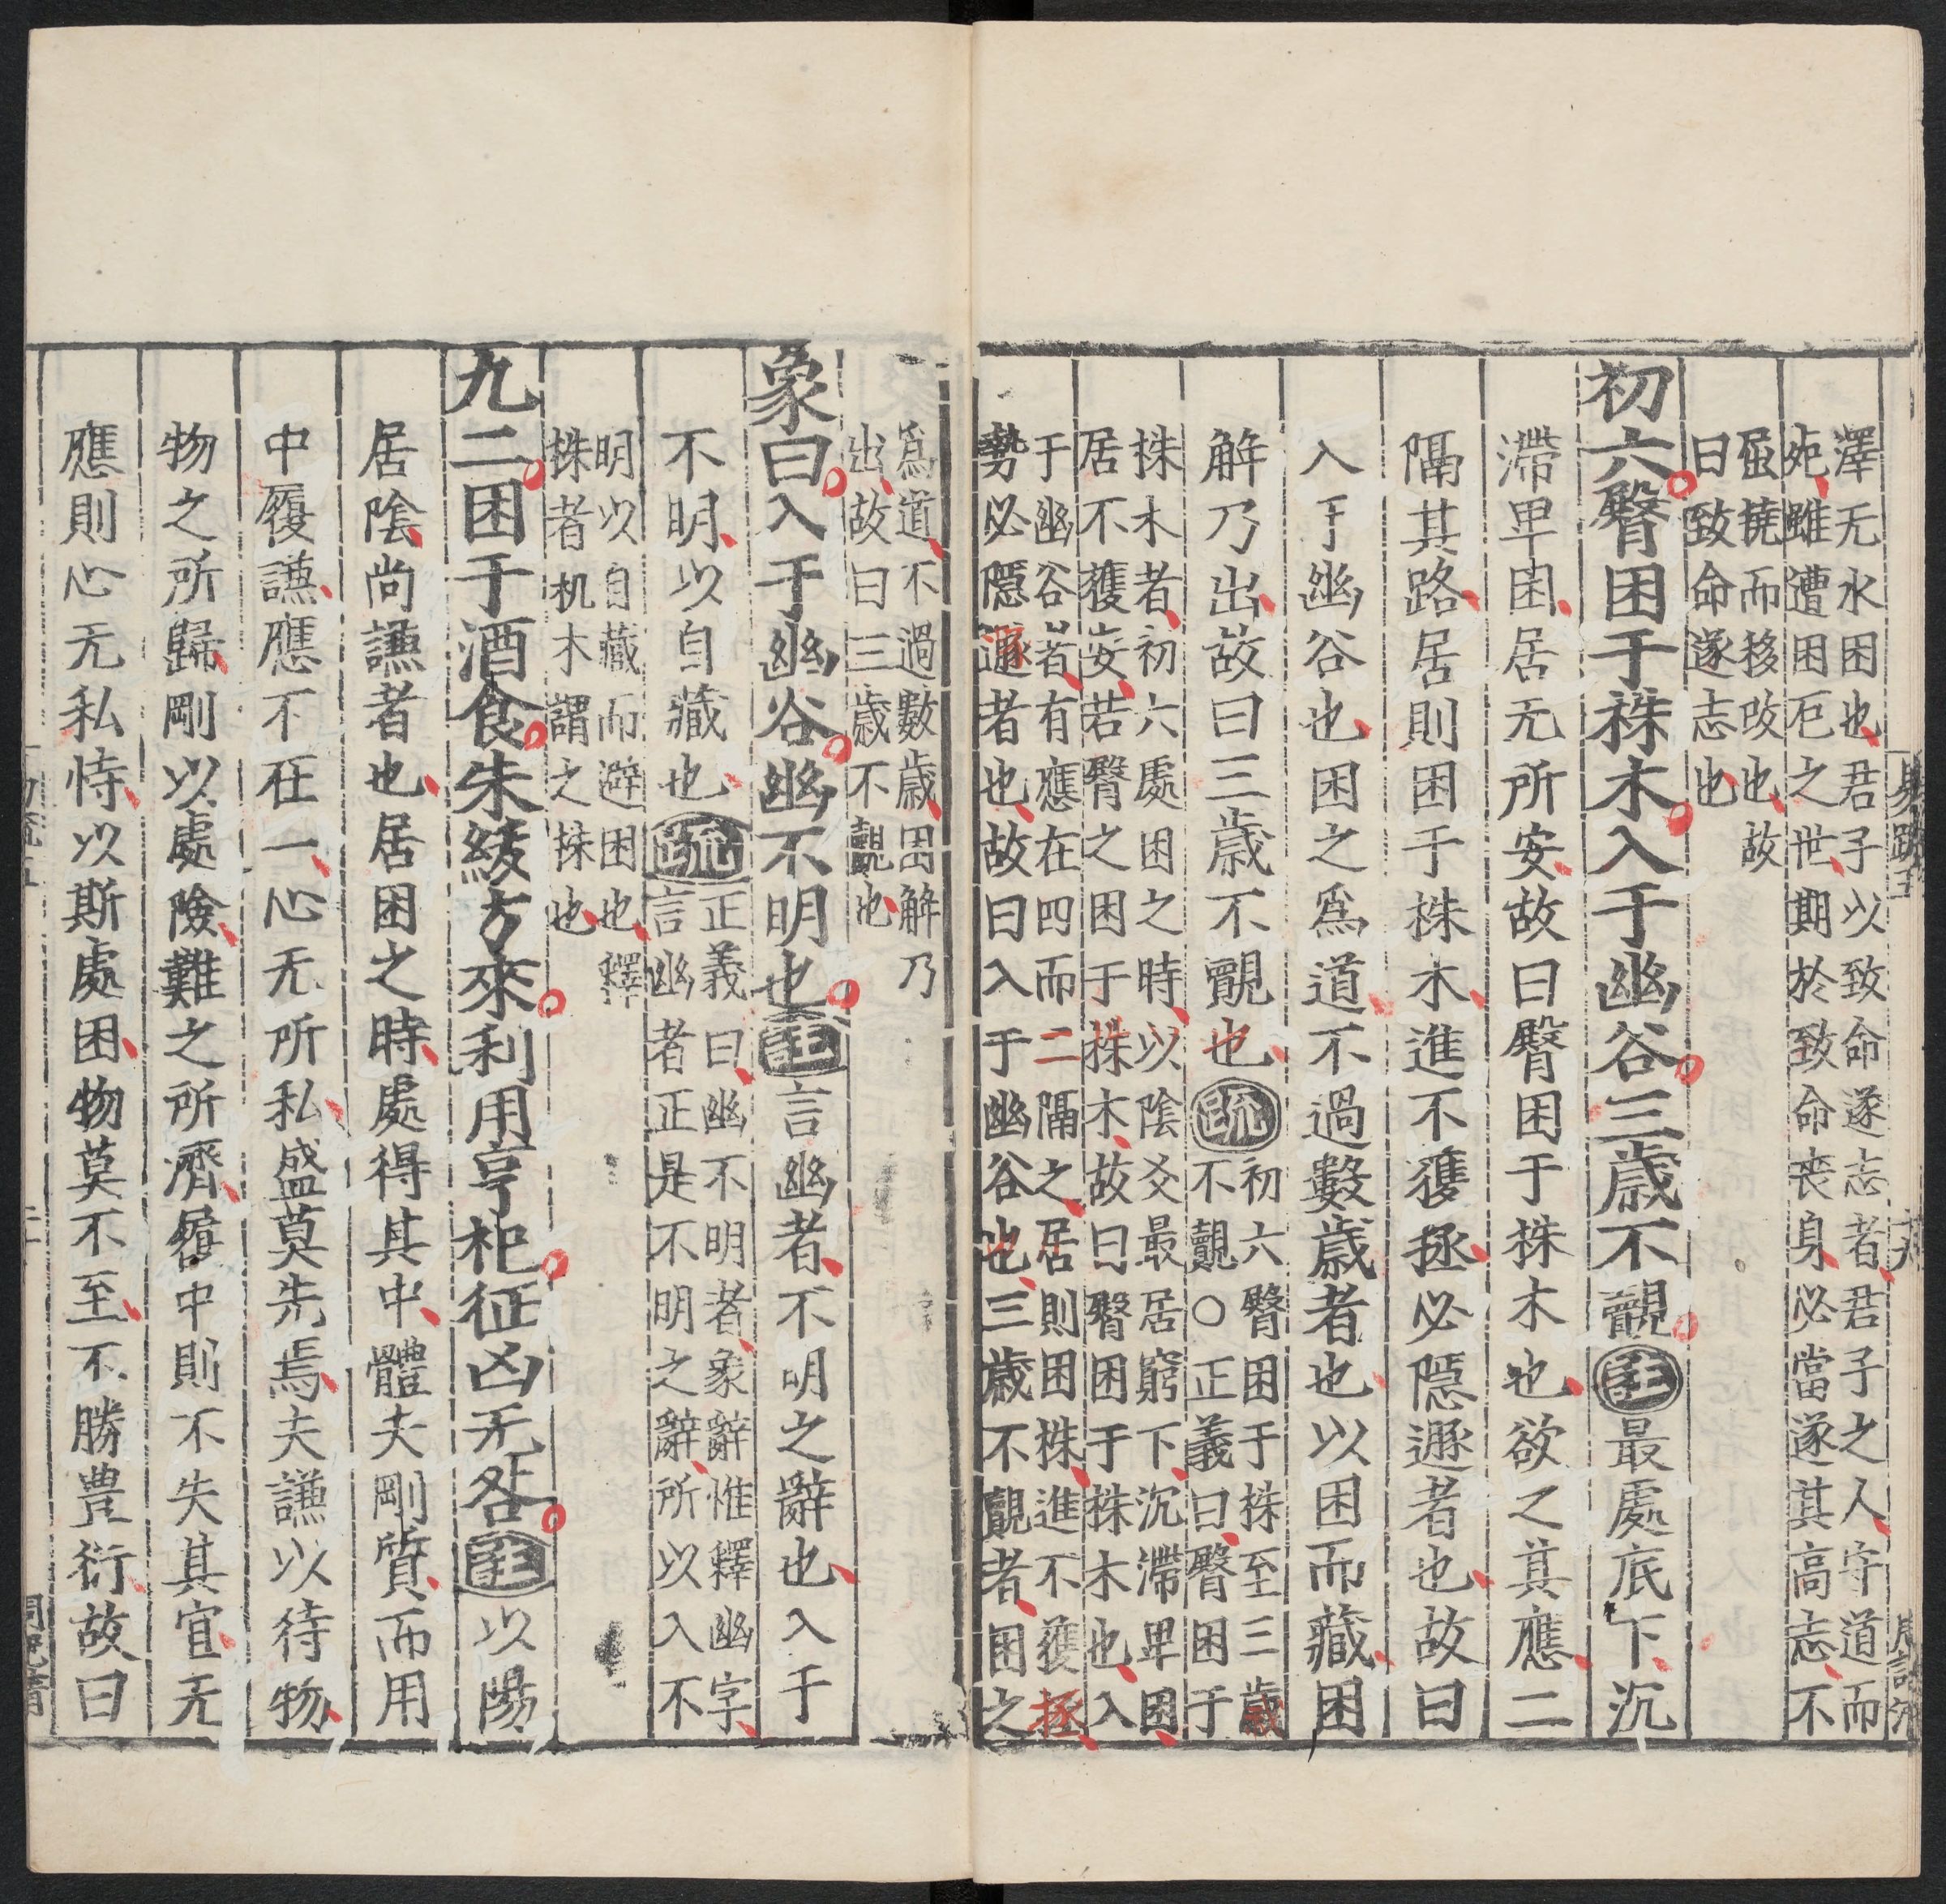 澤无水困也君子以致命遂志者君子之人守道而
死雖遭困厄之世期於致命喪身必當遂其高志不
屈撓而移改也故
曰致命遂志也
初六臀困于株木入于幽谷三歲不覿註最處底下沉
滯卑困居无所安故曰臀困于株木也欲之其應二
隔其路居則困于株木進不獲拯必隱遯者也故曰
入于幽谷也困之爲道不過數歲者也以困而藏困
解乃出故曰三歲不覿也疏
初六臀困于株至三歲
不覿○正義曰臀困于
株木者初六處困之時以陰爻最居窮下沉滯卑困
居不獲安若臀之困于株木故曰臀困于株木也入
于幽谷者有應在四而二隔之居則困株進不獲拯
勢必隱遯者也故曰入于幽谷也三歲不覿者困之
爲道不過數歲困解乃
出故曰三歲不覿也
象曰入于幽谷幽不明也註言幽者不明之辭也入于
不明以自藏也疏
正義曰幽不明者象辭惟釋幽字
言幽者正是不明之辭所以入不
明以自藏而避困也釋
株者机木謂之株也
九二困于酒食朱紱方來利用亨祀征凶无咎註以陽
居陰尚謙者也居困之時處得其中體夫剛質而用
中履謙應不在一心无所私盛莫先焉夫謙以待物
物之所歸剛以處險難之所濟履中則不失其宜无
應則心无私恃以斯處困物莫不至不勝豊衍故曰